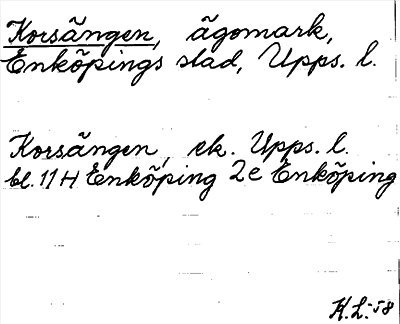 Korsängen, ägomark,
Enköpings stad, Upps. l.
Korsängen, ek. Upps. l.
bl. 11H Enköping 2e Enköping
K.L. -58